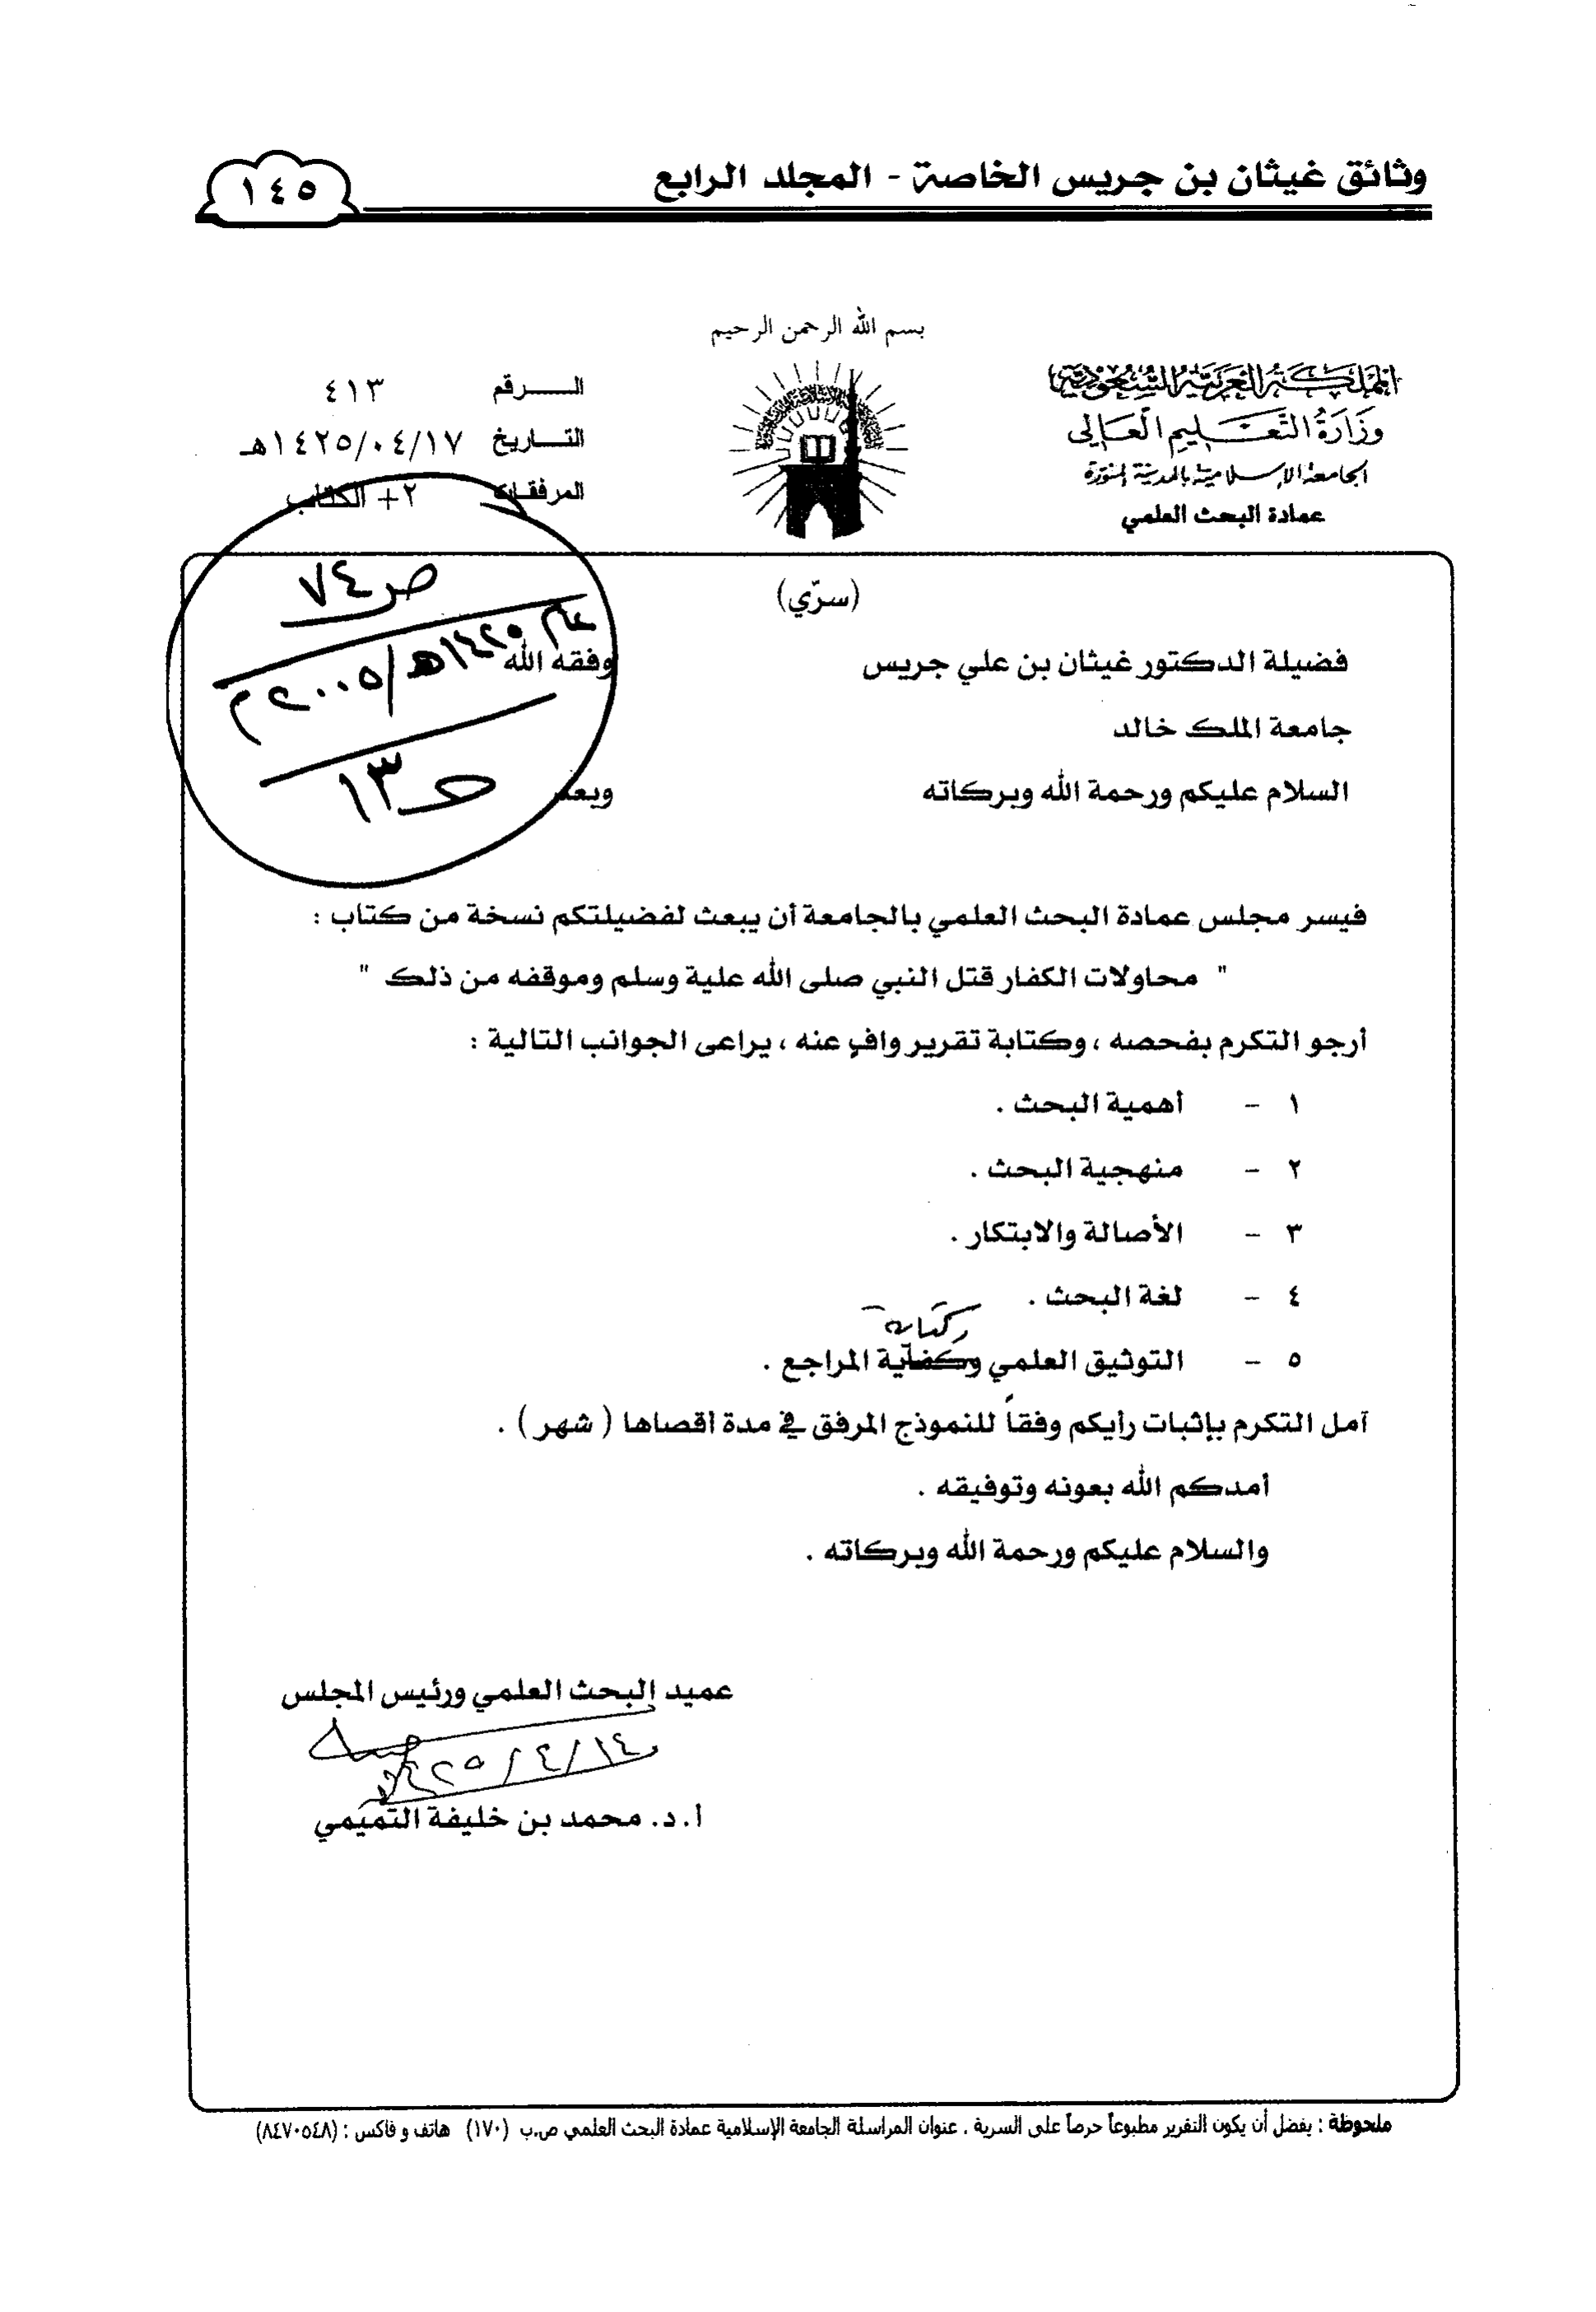 وثائق غيثان بن جريس الخاصة - المجلد الرابع
١٤٥
بسم الله الرحمن الرحيم
المملكة العربية السعودية
وزارة التعليم العالي
الجامعة الإسلامية بالمدينة المنورة
عمادة البحث العلمي
الـــرقم ٤١٣
التـــاريخ ١٤٢٥/٠٤/١٧هـ
المرفقات ٢+ الكتاب
ص ٧٤
عام ١٤٢٥هـ/٢٠٠٥م
حـ ١٣
(سرّي)
فضيلة الدكتور غيثان بن علي جريس وفقه الله
جامعة الملك خالد
السلام عليكم ورحمة الله وبركاته وبعد
فيسر مجلس عمادة البحث العلمي بالجامعة أن يبعث لفضيلتكم نسخة من كتاب :
" محاولات الكفار قتل النبي صلى الله علية وسلم وموقفه من ذلك "
أرجو التكرم بفحصه ، وكتابة تقرير وافٍ عنه ، يراعى الجوانب التالية :
١ - أهمية البحث .
٢ - منهجية البحث .
٣ - الأصالة والابتكار .
٤ - لغة البحث .
وكتابة
٥ - التوثيق العلمي وكفاية المراجع .
آمل التكرم بإثبات رأيكم وفقاً للنموذج المرفق في مدة أقصاها ( شهر ) .
أمدكم الله بعونه وتوفيقه .
والسلام عليكم ورحمة الله وبركاته .
عميد البحث العلمي ورئيس المجلس
١٤/٤/١٤٢٥
أ . د. محمد بن خليفة التميمي
ملحوظة : يفضل أن يكون التقرير مطبوعاً حرصاً على السرية . عنوان المراسلة الجامعة الإسلامية عمادة البحث العلمي ص.ب (١٧٠) هاتف و فاكس : (٨٤٧٠٥٤٨)